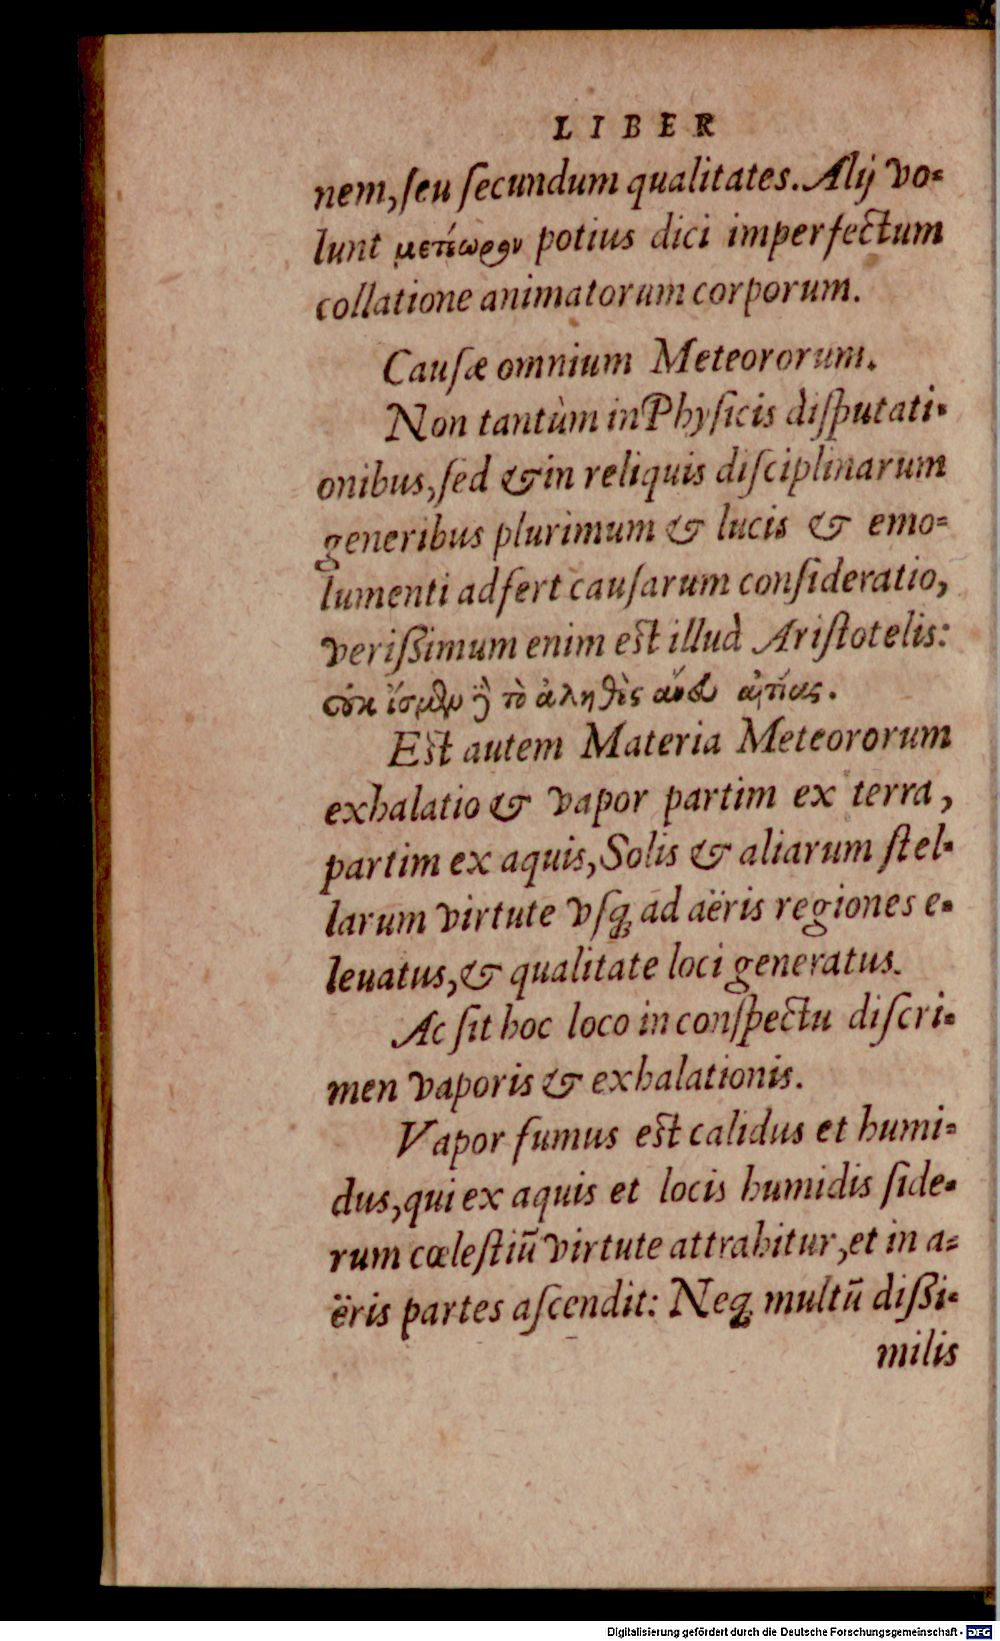 LIBER
nem, ſeu ſecundum qualitates. Alij vo-
lunt μετέωρον potius dici imperfectum
collatione animatorum corporum.
Cauſæ omnium Meteororum.
Non tantùm in Phyſicis diſputati-
onibus, ſed & in reliquis diſciplinarum
generibus plurimum & lucis & emo-
lumenti adfert cauſarum conſideratio,
veriſſimum enim est illud Ariſtotelis:
οὐκ ἴσμεν ἢ τὸ ἀληθὲς ἄνευ αἰτίας.
Est autem Materia Meteororum
exhalatio & vapor partim ex terra,
partim ex aquis, Solis & aliarum ſtel-
larum virtute vſq; ad aëris regiones e-
leuatus, & qualitate loci generatus.
Ac ſit hoc loco in conſpectu diſcri-
men vaporis & exhalationis.
Vapor fumus est calidus et humi-
dus, qui ex aquis et locis humidis ſide-
rum cœleſtiū virtute attrahitur, et in a-
ëris partes aſcendit: Neq; multū diſſi-
milis
Digitalisierung gefördert durch die Deutsche Forschungsgemeinschaft - DFG